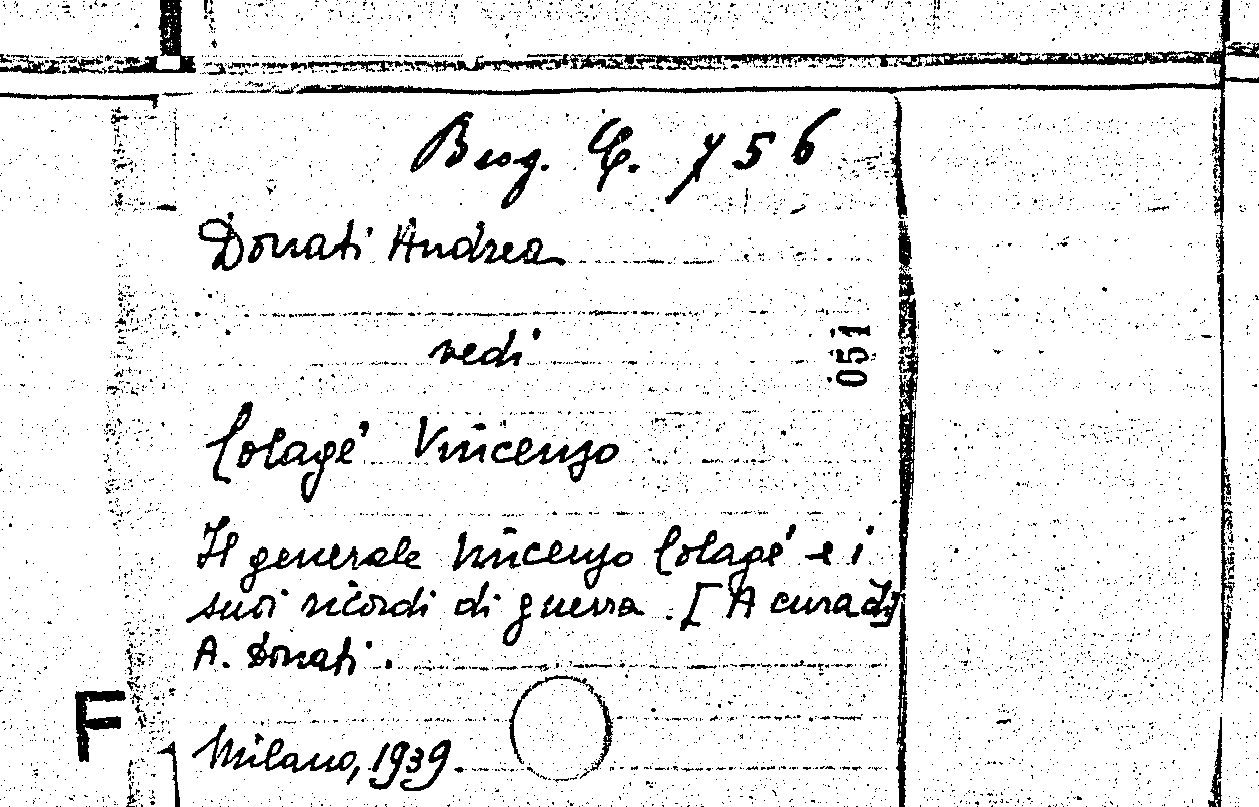 Biog. C. 756
Donati Andrea
vedi
051
Colagé Vincenzo
Il generale Vincenzo Colagé e i
suoi ricordi di guerra. [A cura di]
A. Donati.
F
Milano, 1939.